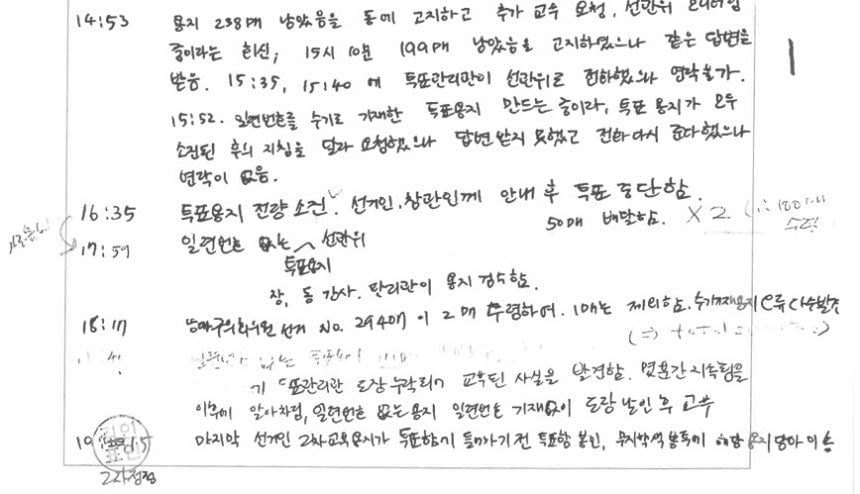 14:53 용지 238매 남았음을 동에 고지하고 추가 교부 요청, 선관위
중이라는 회신, 15시 10분 199매 남았음을 고지하였으나 같은 답변을
받음. 15:35, 15:40 에 투표관리관이 선관위로 전화했으나 연락불가.
15:52. 일련번호를 수기로 기재한 투표용지 만드는 중이라, 투표 용지가 모두
소진된 후의 지침을 달라 요청했으나 답변 받지 못했고 전화 다시 준다했으나
연락이 없음.
16:35 투표용지 전량 소진. 선거인, 참관인께 안내 후 투표 중단함.
17:59 일련번호 없는 투표용지 선관위 50매 배달함. X 2 (∴ 100매
수령
참, 동 간사. 관리관이 용지 검수함.
18:17 구의회의원 선거 No. 29407 이 2매 수령하여. 1매는 제외함.
(⇒ total
도장 누락되어 교부된 사실을 발견함. 몇분간 지속됨을
이후에 알아차림, 일련번호 없는 용지 일련번호 기재없이 도장 날인 후 교부
마지막 선거인 2차교부용지가 투표함에 들어가기 전 투표함 봉인, 해당 용지 담아